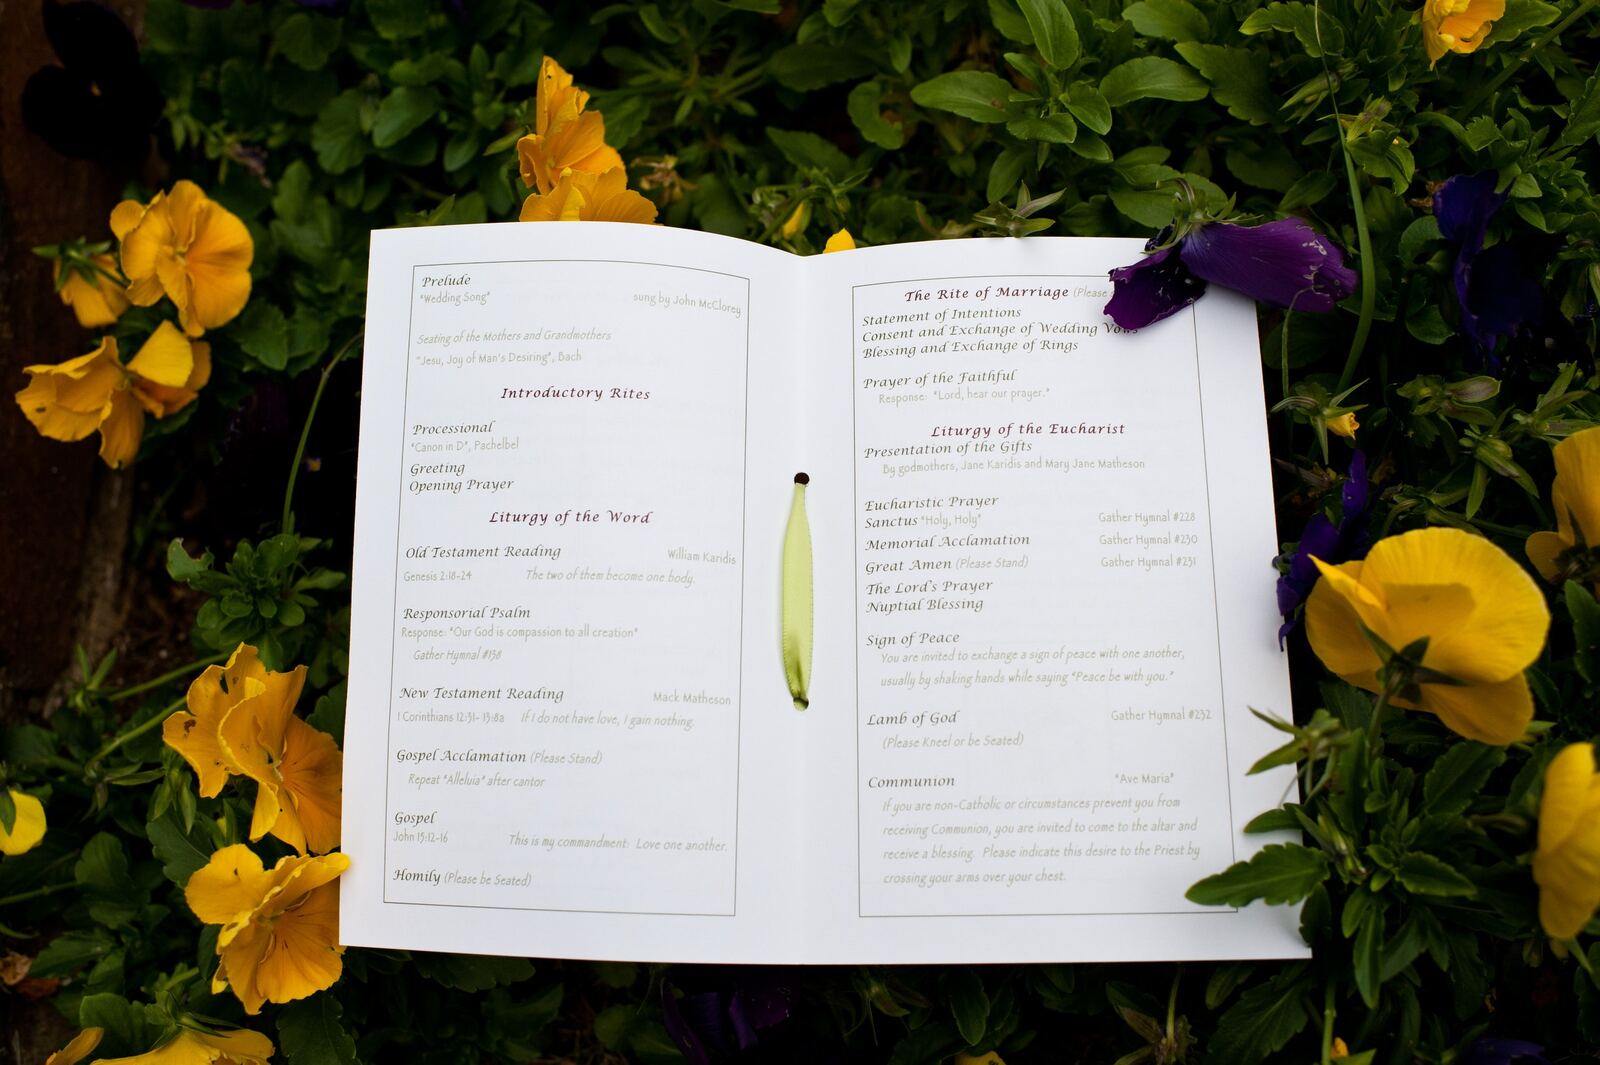 Prelude
"Wedding Song" sung by John McClorey
Seating of the Mothers and Grandmothers
"Jesu, Joy of Man's Desiring", Bach
Introductory Rites
Processional
"Canon in D", Pachelbel
Greeting
Opening Prayer
Liturgy of the Word
Old Testament Reading William Karidis
Genesis 2:18-24 The two of them become one body.
Responsorial Psalm
Response: "Our God is compassion to all creation"
Gather Hymnal #138
New Testament Reading Mack Matheson
1 Corinthians 12:31- 13:8a If I do not have love, I gain nothing.
Gospel Acclamation (Please Stand)
Repeat "Alleluia" after cantor
Gospel
John 15:12-16 This is my commandment: Love one another.
Homily (Please be Seated)
The Rite of Marriage (Please
Statement of Intentions
Consent and Exchange of Wedding Vows
Blessing and Exchange of Rings
Prayer of the Faithful
Response: "Lord, hear our prayer."
Liturgy of the Eucharist
Presentation of the Gifts
By godmothers, Jane Karidis and Mary Jane Matheson
Eucharistic Prayer
Sanctus "Holy, Holy" Gather Hymnal #228
Memorial Acclamation Gather Hymnal #230
Great Amen (Please Stand) Gather Hymnal #231
The Lord's Prayer
Nuptial Blessing
Sign of Peace
You are invited to exchange a sign of peace with one another,
usually by shaking hands while saying "Peace be with you."
Lamb of God Gather Hymnal #232
(Please Kneel or be Seated)
Communion "Ave Maria"
If you are non-Catholic or circumstances prevent you from
receiving Communion, you are invited to come to the altar and
receive a blessing. Please indicate this desire to the Priest by
crossing your arms over your chest.